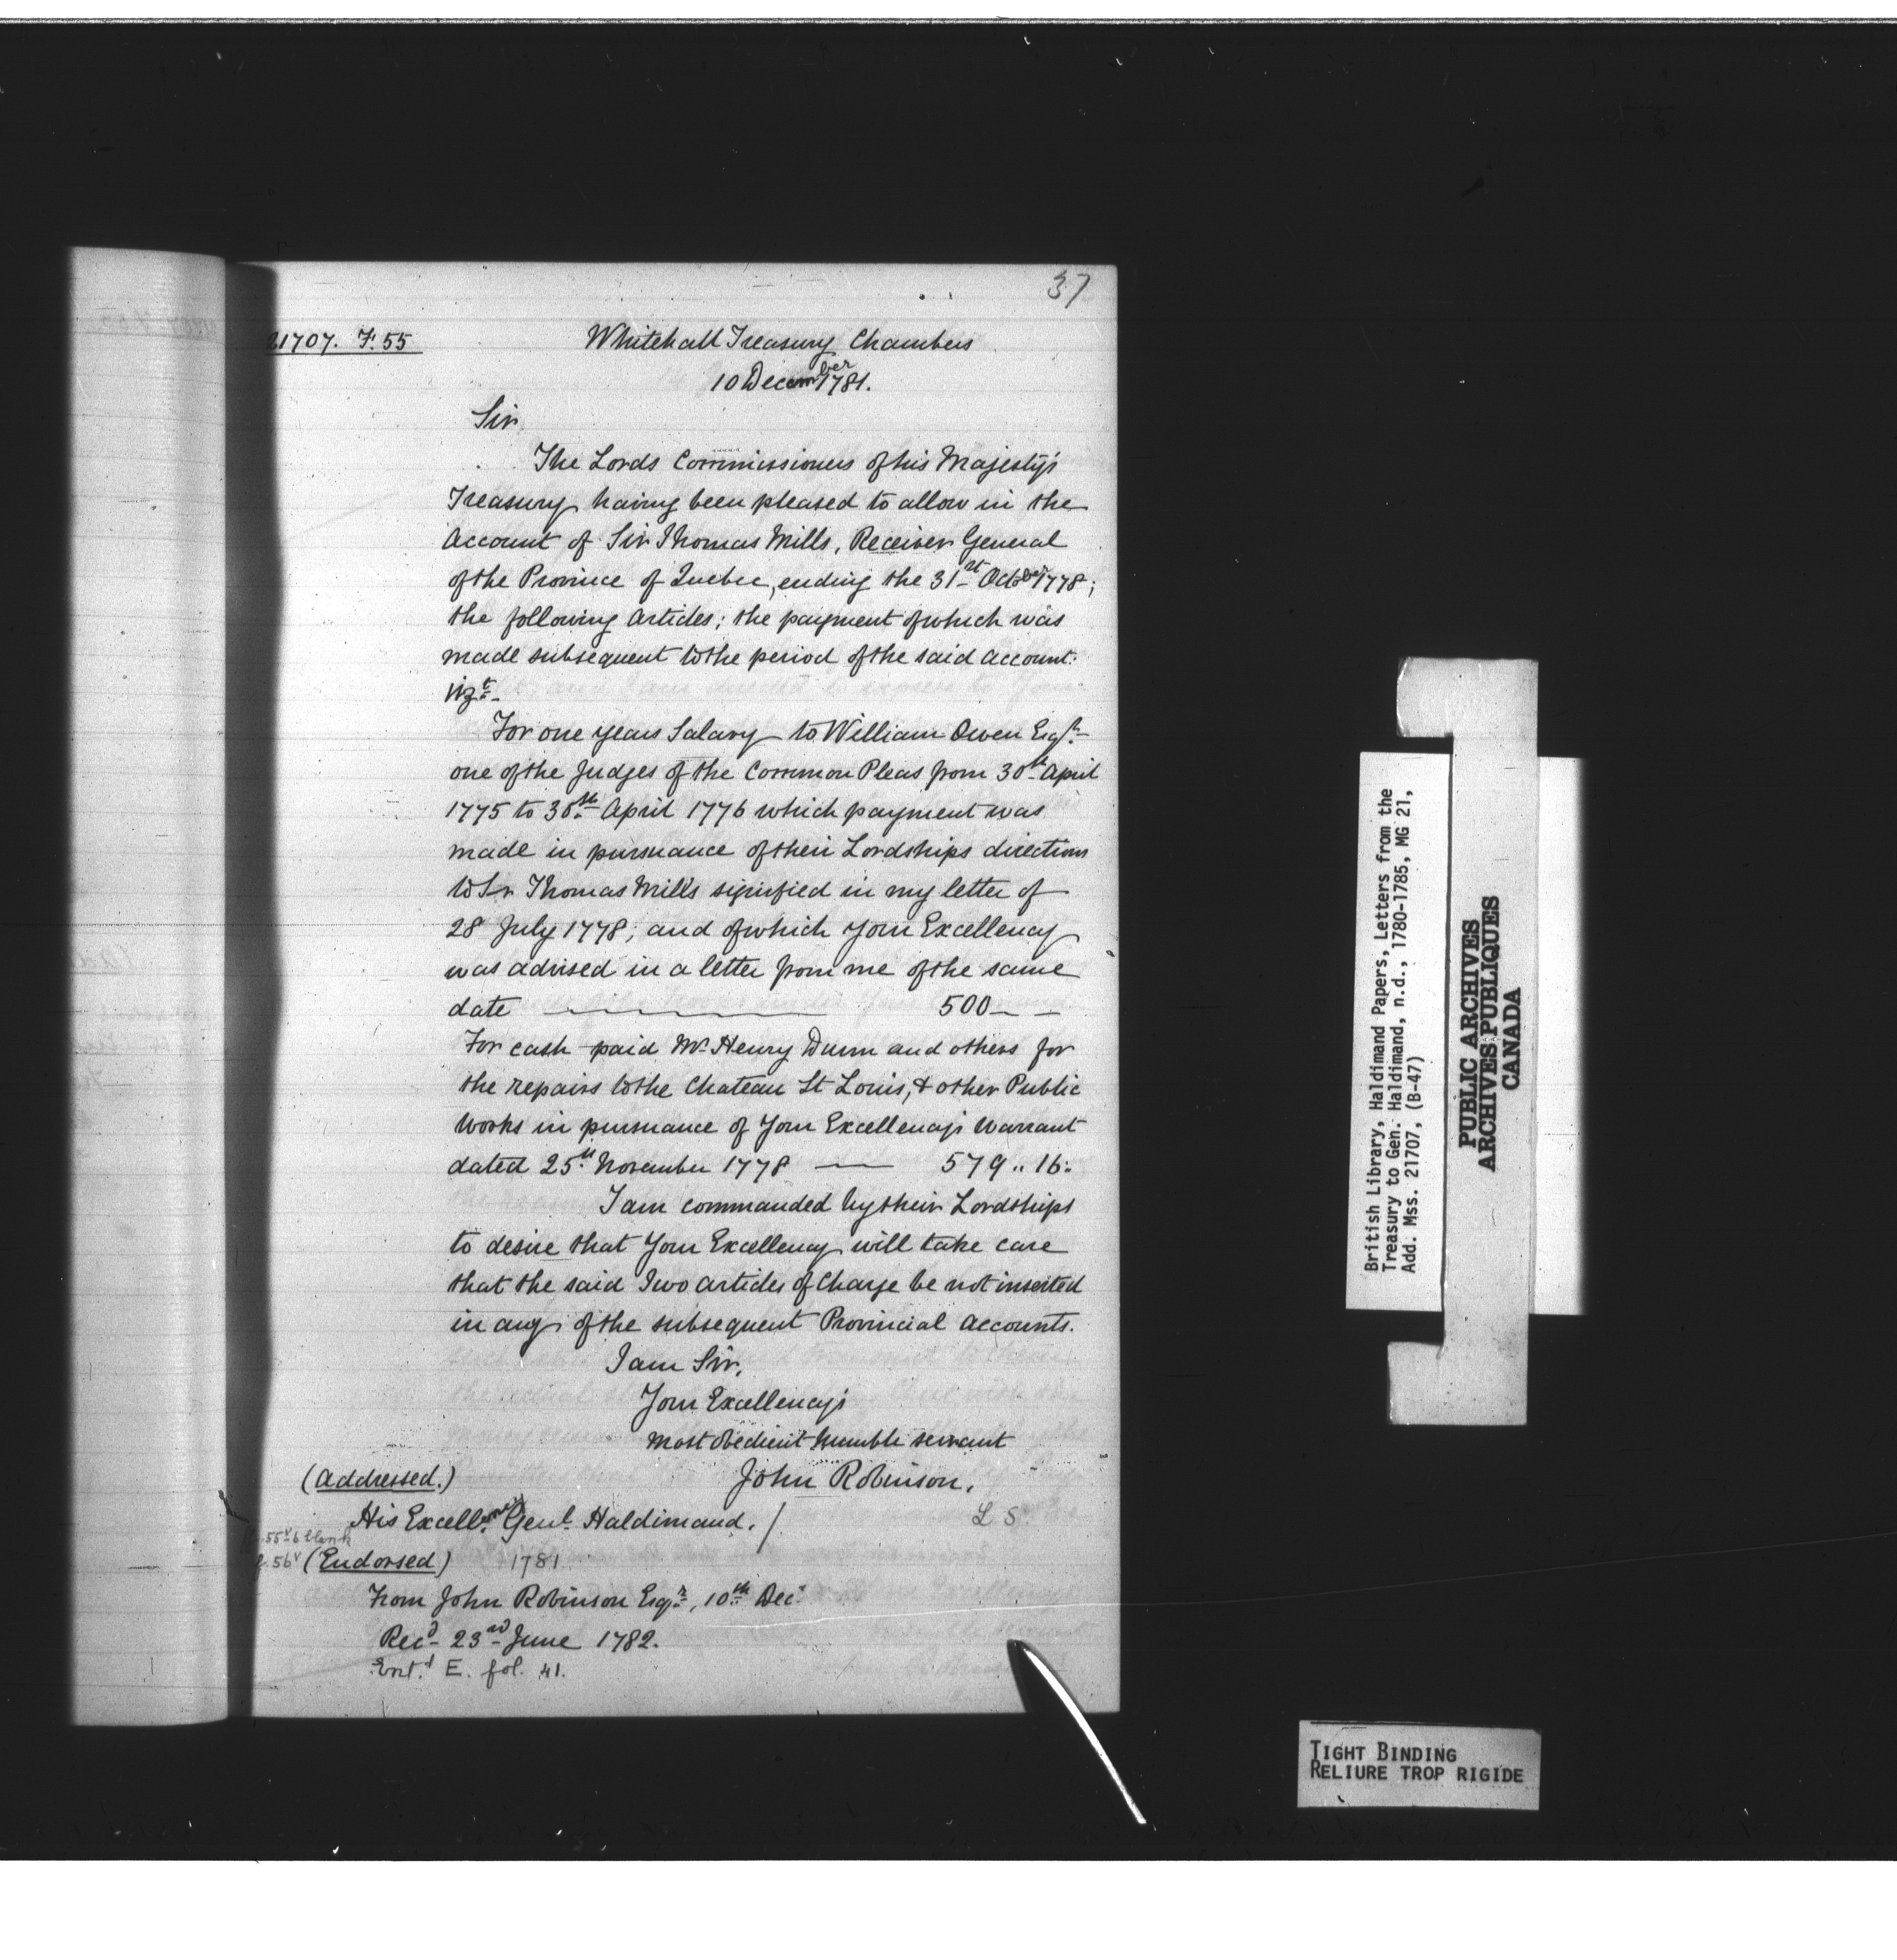 37
21707. F. 55
Whitehall Treasury Chambers
10 December 1781.
Sir
The Lords Commissioners of his Majesty's
Treasury having been pleased to allow in the
Account of Sir Thomas Mills, Receiver General
of the Province of Quebec, ending the 31st October 1778;
the following Articles; the payment of which was
made subsequent to the period of the said Account.
Vizt.
For one years Salary to William Owen Esqr.
one of the Judges of the Common Pleas from 30th April
1775 to 30th April 1776 which payment was
made in pursuance of their Lordships directions
to Sr Thomas Mills signified in my letter of
28 July 1778; and of which Your Excellency
was advised in a letter from me of the same
date 500 - -
For cash paid Mr. Henry Dunn and others for
the repairs to the Chateau St Louis, & other Public
Works in pursuance of Your Excellency's Warrant
dated 25th November 1778 — 579 .. 16 :
I am commanded by their Lordships
to desire that Your Excellency will take care
that the said Two articles of Charge be not inserted
in any of the subsequent Provincial Accounts.
I am Sir,
Your Excellency's
Most obedient humble servant
(Addressed.) John Robinson.
His Excellency Genl. Haldimand. / L S.
55v-6 blank
f. 56v (Endorsed) 1781
From John Robinson Esqr., 10th Decr
Recd 23rd June 1782.
Entd E. fol. 41.
British Library, Haldimand Papers, Letters from the
Treasury to Gen. Haldimand, n.d., 1780-1785, MG 21,
Add. Mss. 21707, (B-47)
PUBLIC ARCHIVES
ARCHIVES PUBLIQUES
CANADA
TIGHT BINDING
RELIURE TROP RIGIDE